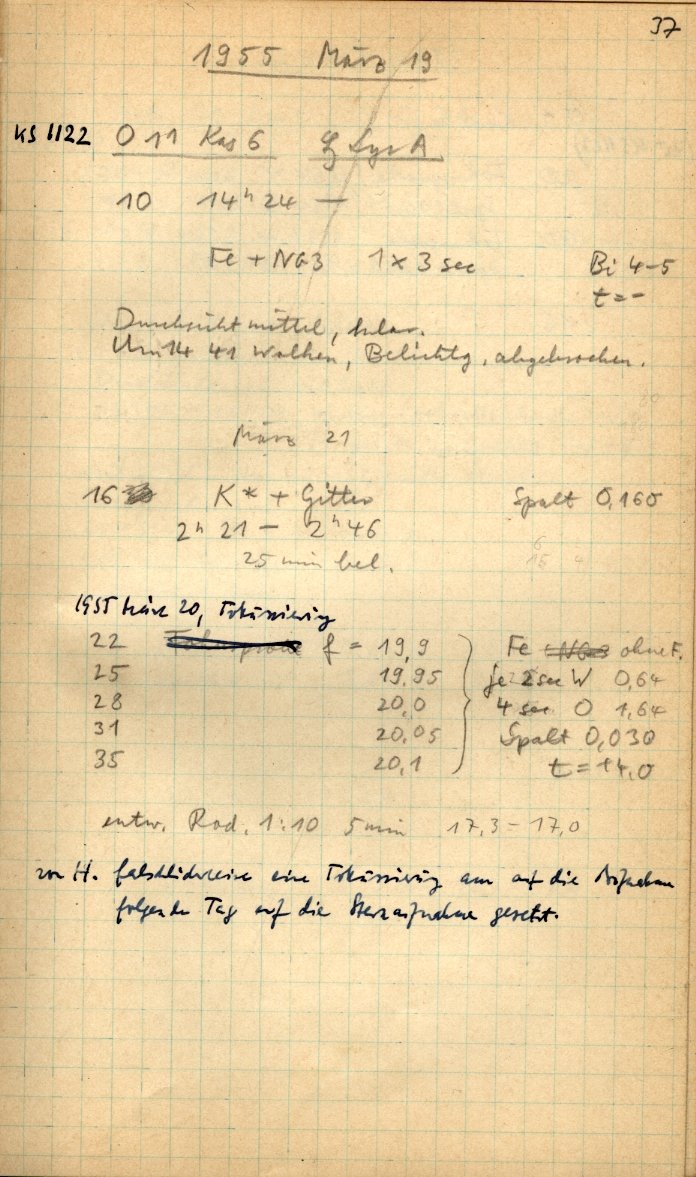 37
1955 März 19
KS 1122 O 11 Kas 6 ζ Lyr A
10 14ʰ 24 —
Fe + NG3 1 × 3 sec Bi 4-5
t = -
Durchsicht mittel, klar.
Um 14 41 Wolken, Belichtg. abgebrochen.
März 21
16 K* + Gitter Spalt 0,160
2ʰ 21 — 2ʰ 46
25 min bel.
1955 März 20, Fokussierung
22 f = 19,9 Fe ohne F.
25 19,95 je 2 sec W 0,64
28 20,0 4 sec O 1,64
31 20,05 Spalt 0,030
35 20,1 t = +4,0
entw. Rod. 1:10 5 min 17,3 – 17,0
von H. fälschlicherweise eine Fokussierung am auf die Aufnahme
folgenden Tag auf die Sternaufnahme gesetzt.